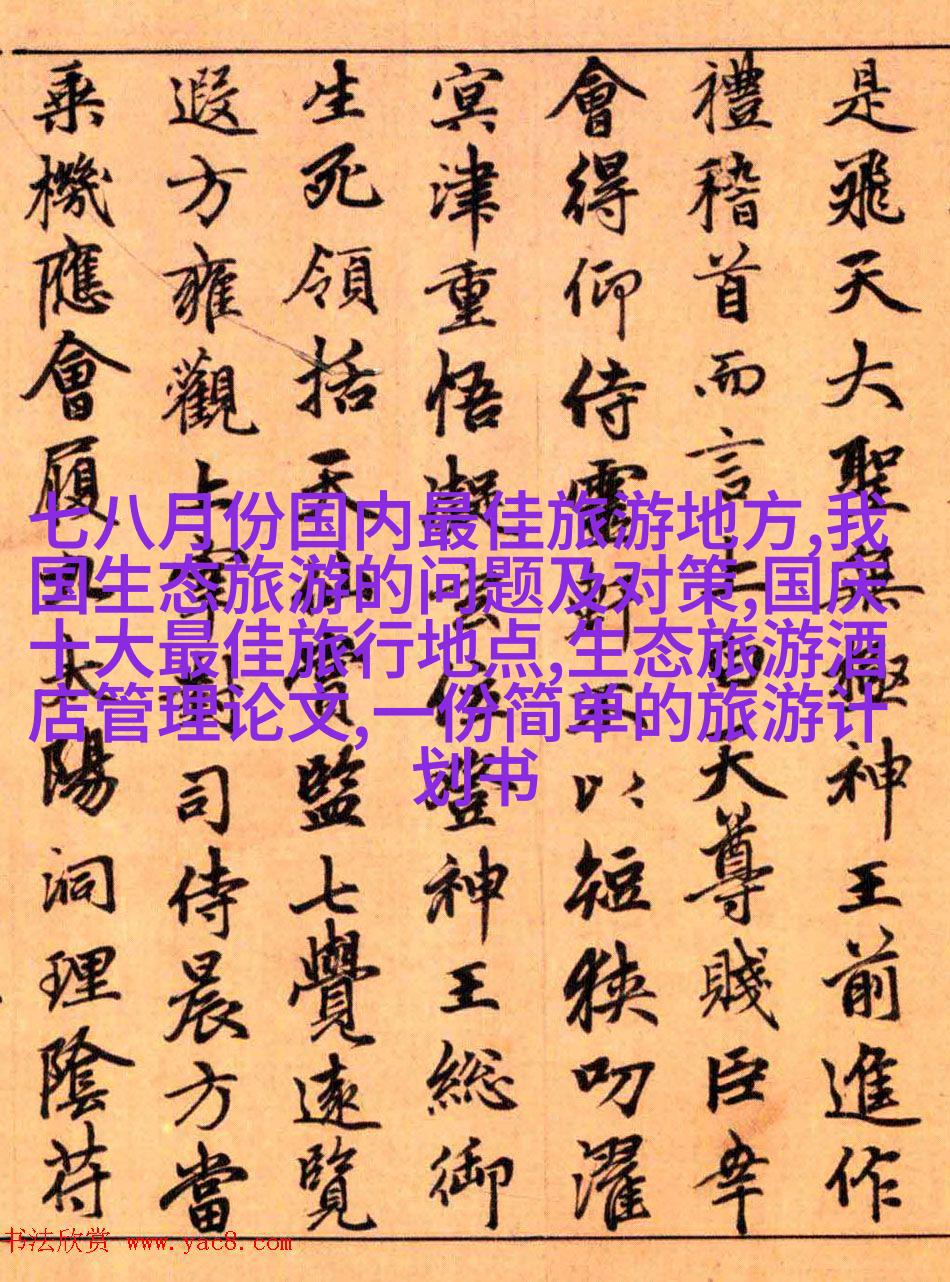 是飛天大聖無極神王前進作
禮稽首而言上白天尊賤臣幸
會得仰侍靈以短狹叨濯
冥津重悟凝玄位登神王総御
生死領括天監七覺遠覽
遐方雍觀上宰司侍晨方當
乘機應會履太陽洞理陰苻
七八月份国内最佳旅游地方,我
国生态旅游的问题及对策,国庆
十大最佳旅行地点,生态旅游酒
店管理论文,一份简单的旅游计
划书
书法欣赏 www.yac8.com